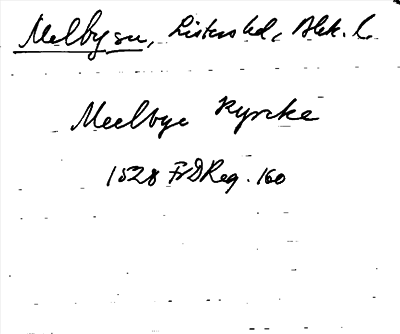 Melby sn, Listers hd, Blek. l.
Meelbye Kyrcke
1528 FrDReg. 160